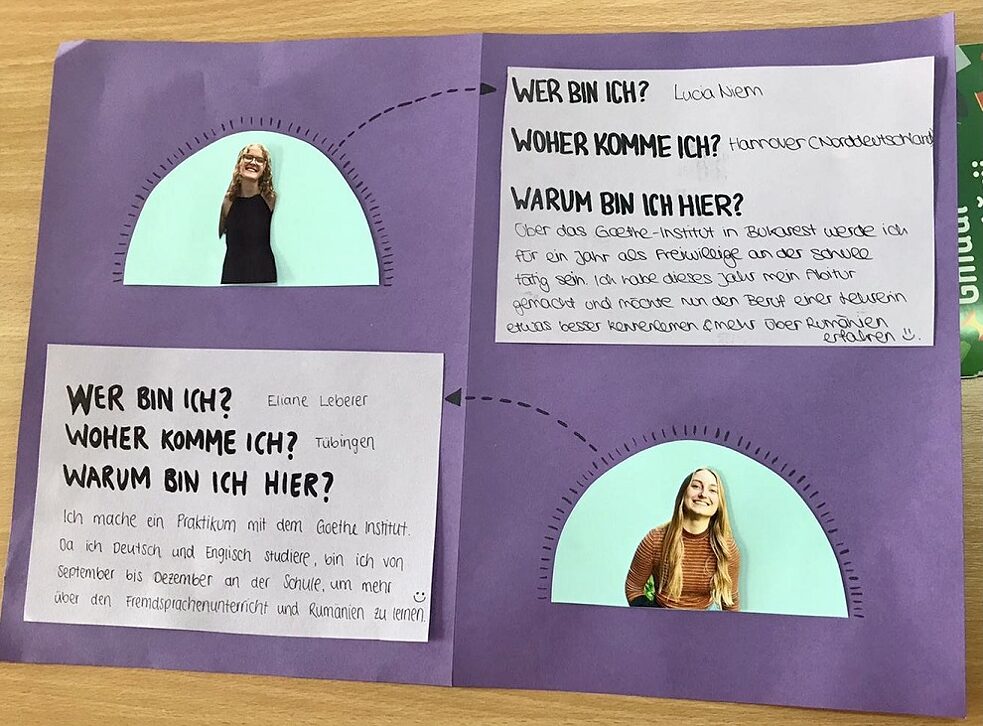 WER BIN ICH? Lucia Niem
WOHER KOMME ICH? Hannover (Norddeutschland)
WARUM BIN ICH HIER?
Über das Goethe-Institut in Bukarest werde ich
für ein Jahr als Freiwillige an der Schule
tätig sein. Ich habe dieses Jahr mein Abitur
gemacht und möchte nun den Beruf einer Lehrerin
etwas besser kennenlernen & mehr über Rumänien
erfahren
WER BIN ICH? Eliane Leberer
WOHER KOMME ICH? Tübingen
WARUM BIN ICH HIER?
Ich mache ein Praktikum mit dem Goethe Institut.
Da ich Deutsch und Englisch studiere, bin ich von
September bis Dezember an der Schule, um mehr
über den Fremdsprachenunterricht und Rumänien zu lernen.